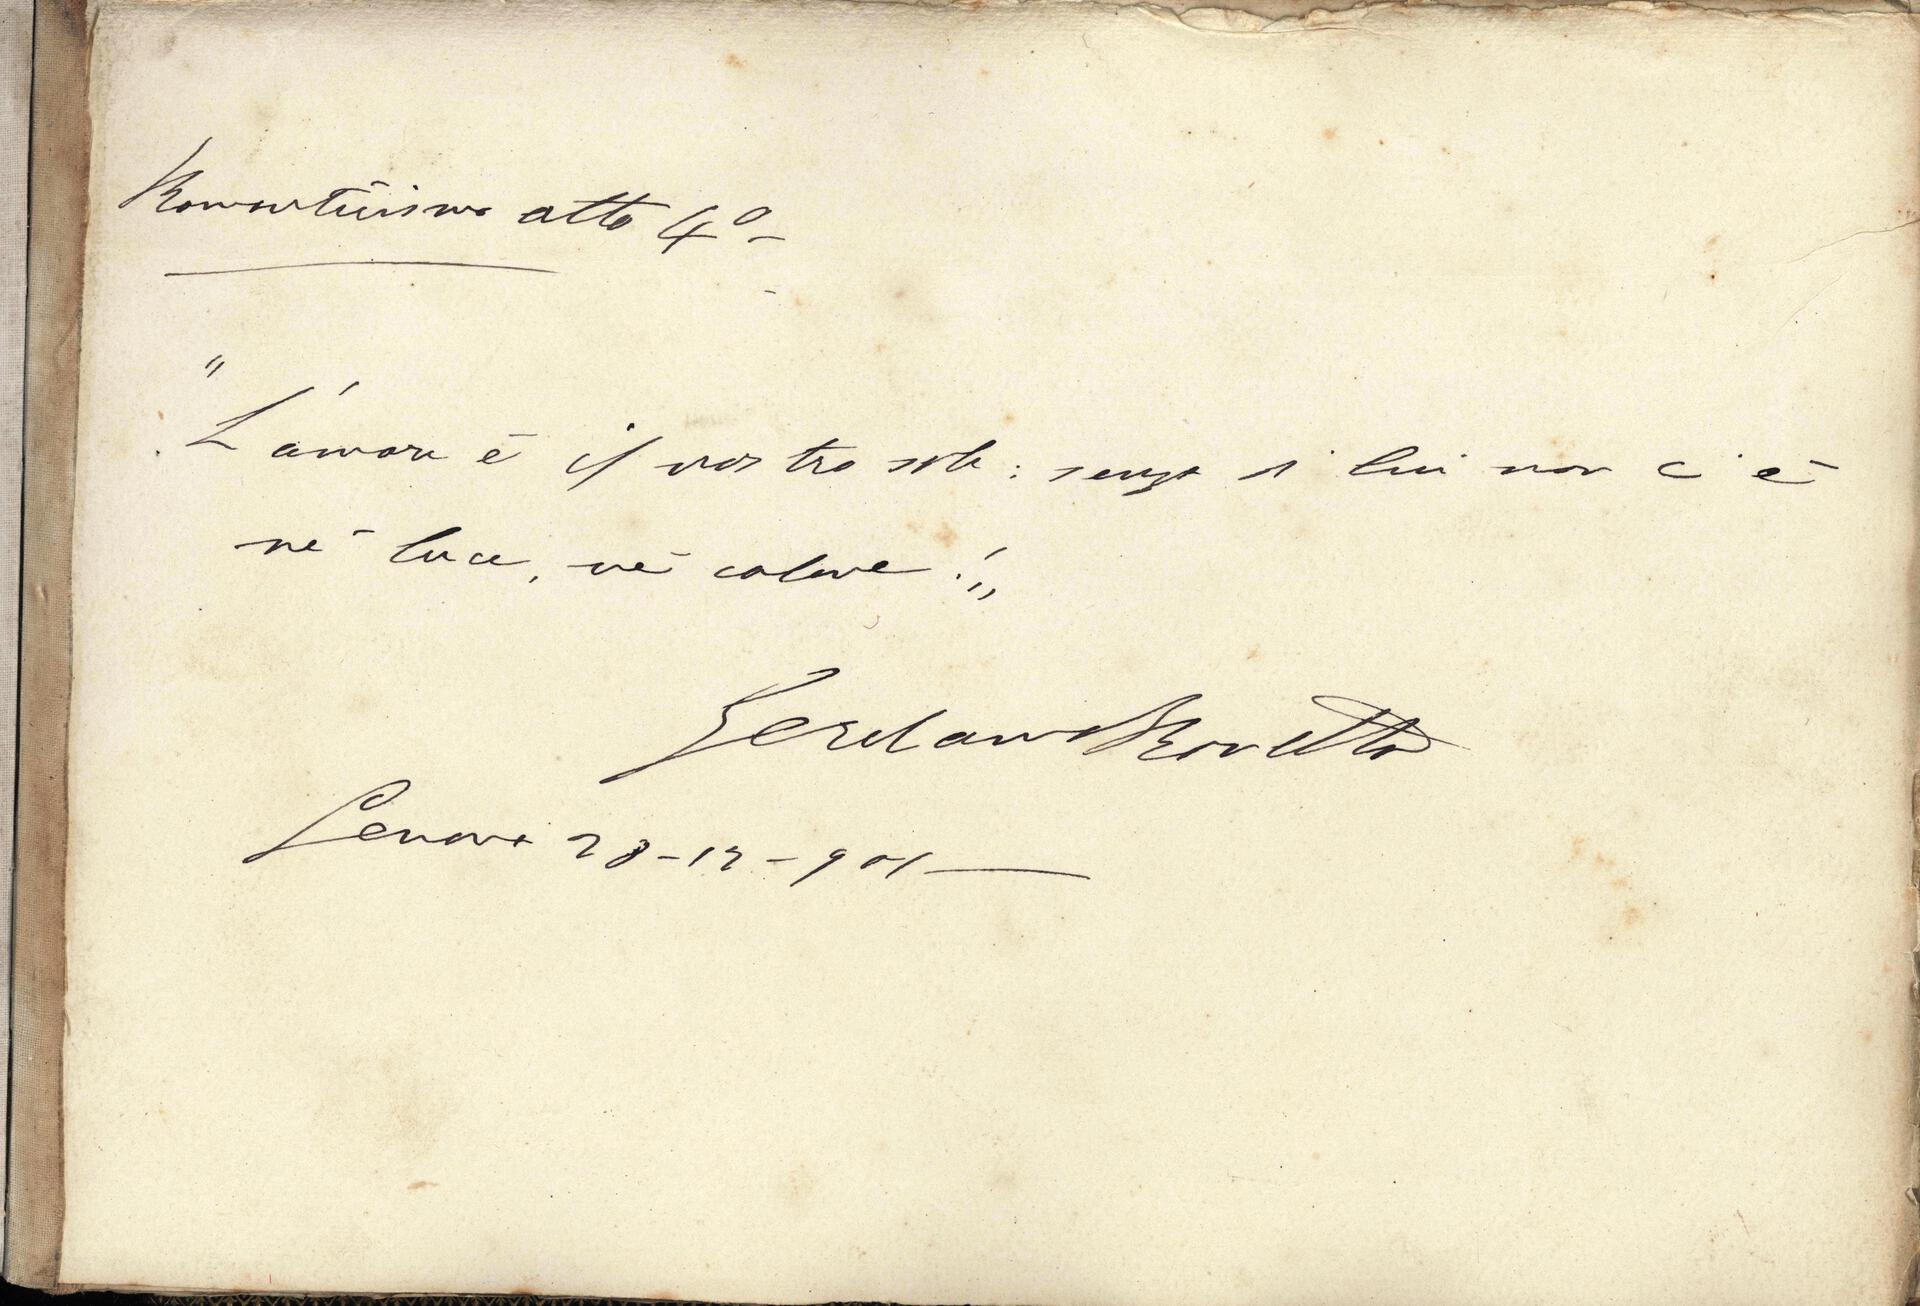 Romanticismo atto 4º-
"L'amore è il nostro sole: senza di lui non c'è
nè luce, nè calore!„
Gerolamo Rovetta
Genova 28-12-901